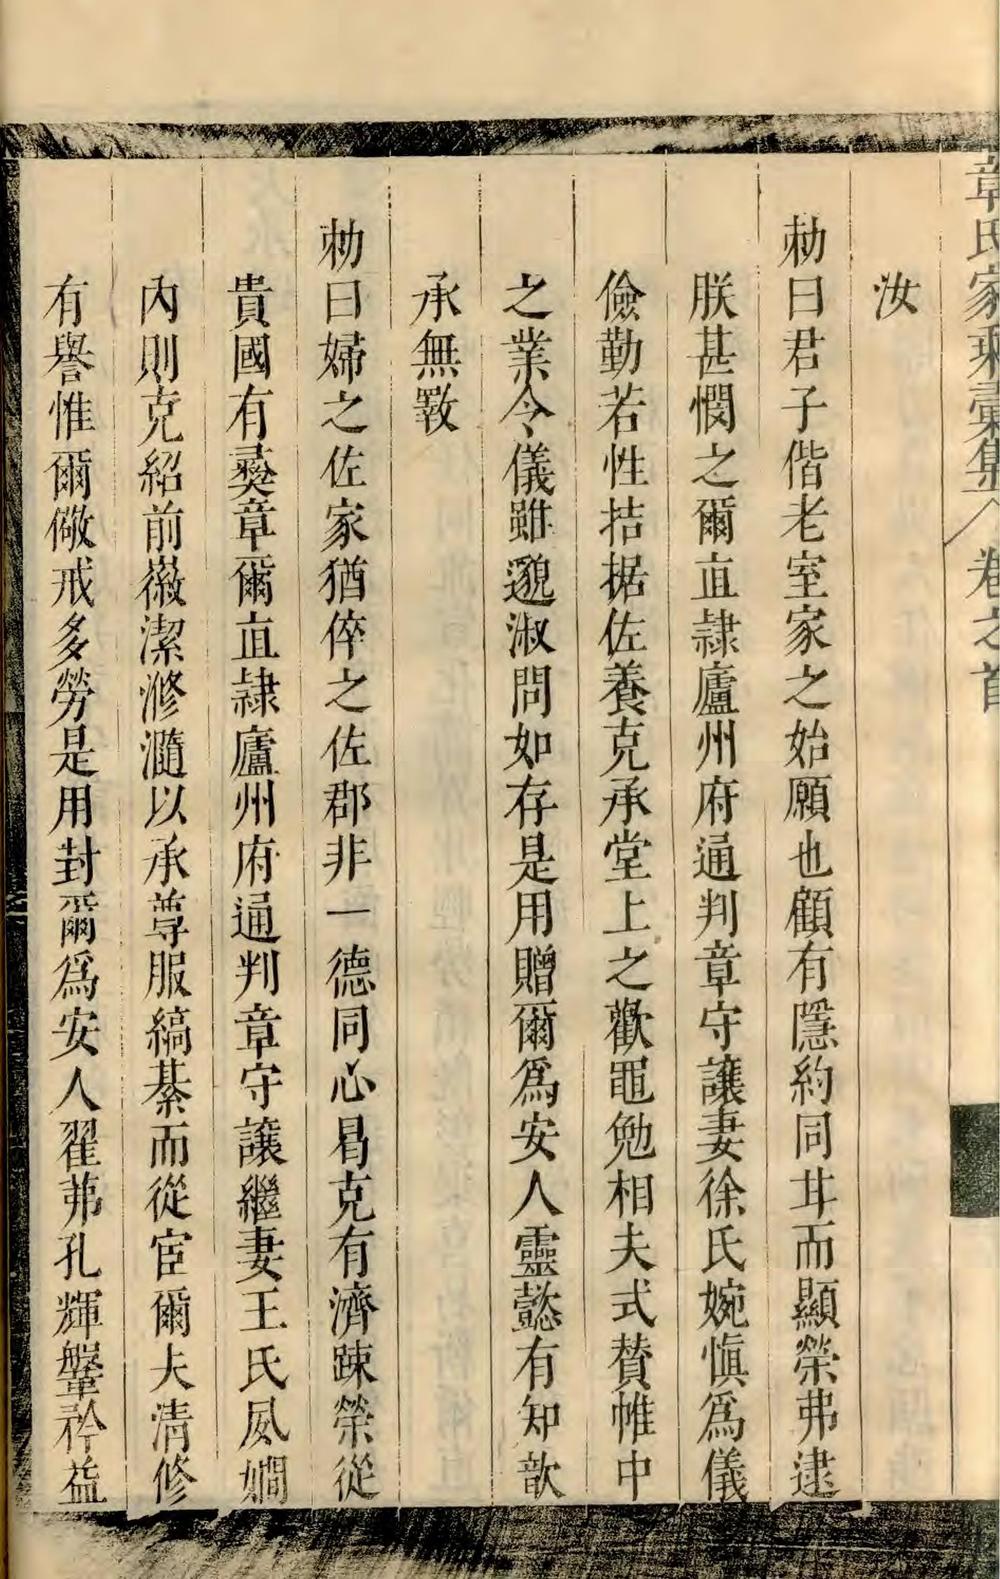 章氏家乘彙集 卷之首
汝
勑曰君子偕老室家之始願也顧有隱約同甘而顯榮弗逮
朕甚憫之爾直隷廬州府通判章守讓妻徐氏婉愼爲儀
儉勤若性拮据佐養克承堂上之歡黽勉相夫式賛帷中
之業令儀雖邈淑問如存是用贈爾爲安人靈懿有知歆
承無斁
勑曰婦之佐家猶倅之佐郡非一德同心曷克有濟踈榮從
貴國有彝章爾直隷廬州府通判章守讓繼妻王氏夙嫺
內則克紹前徽潔滫瀡以承尊服縞綦而從宦爾夫淸修
有譽惟爾儆戒多勞是用封爾爲安人翟茀孔輝鞶矜益